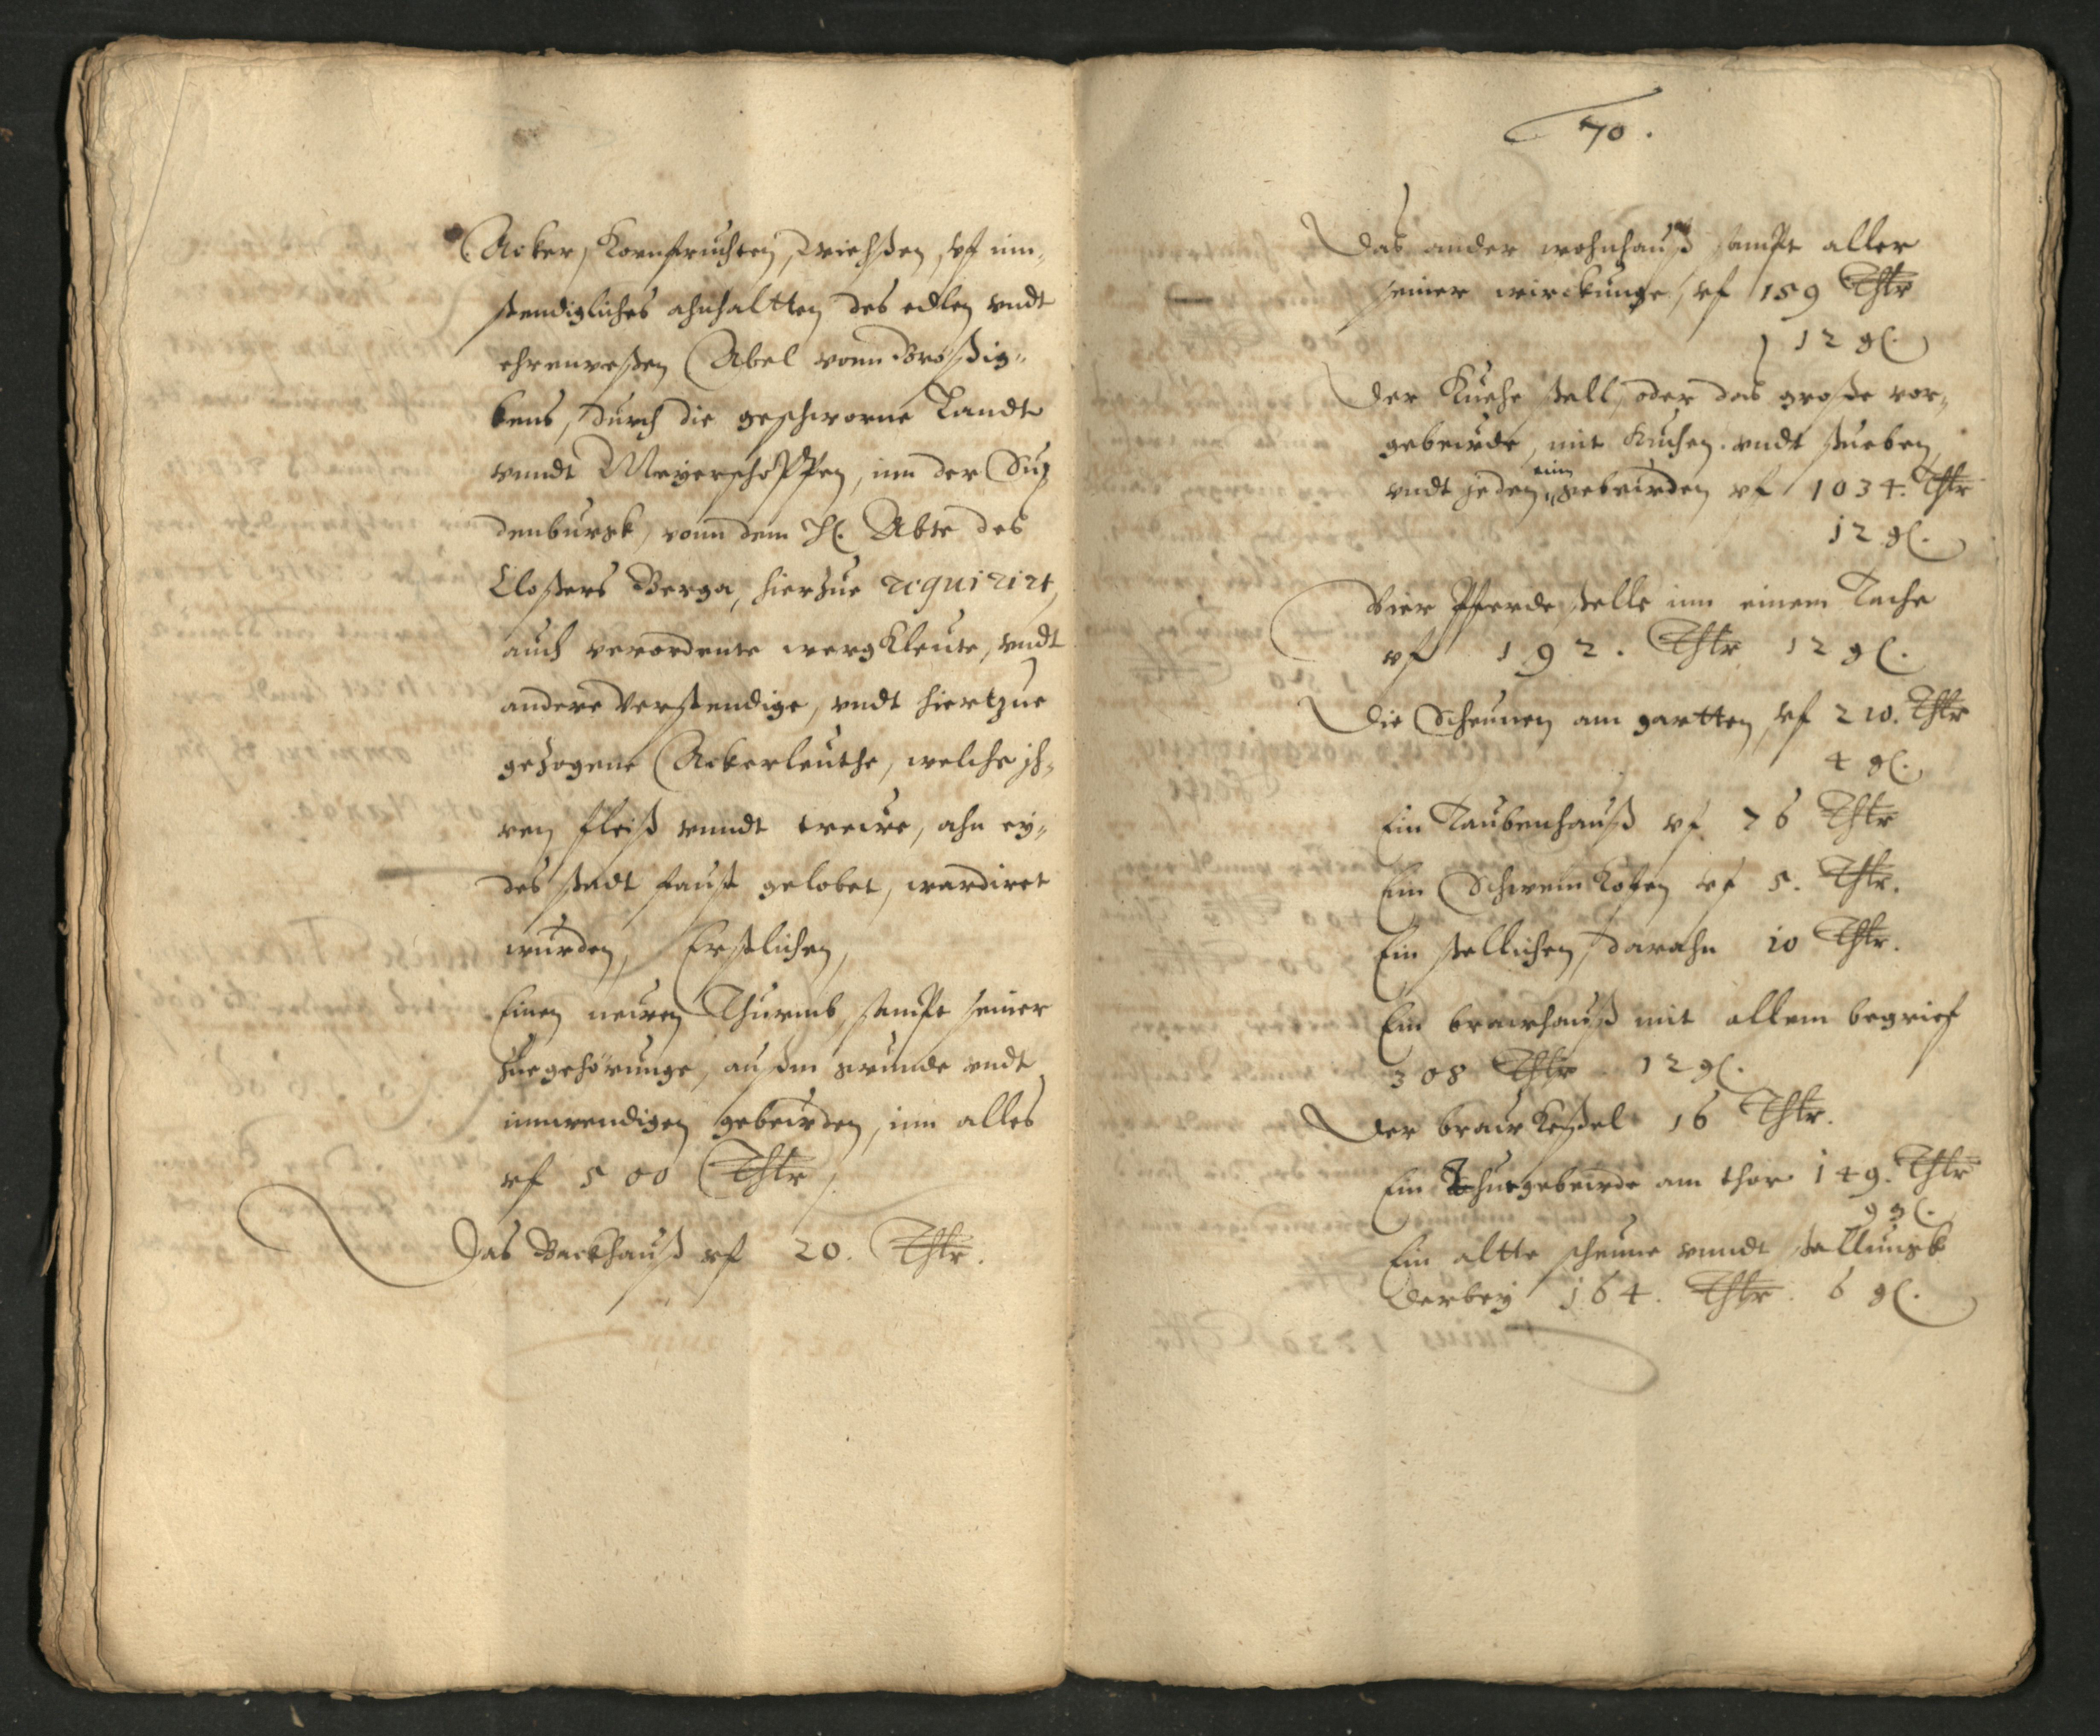 Acker, Kornfruchten, Wiehßen, vf inn-
stendigliches ahnhaltten des edlen vndt
ehrenvesten Abel vonn Brößig-
kens, durch die geschworne Landt
vnndt Meyerschöppen, inn der Su-
denburgk, vonn dem H. Abte des
Closters Berga, hierzue requirirt,
auch verordente wergkleute, vndt
andere verstendige, vndt hiertzue
gezogene Ackerleuthe, welche ih-
ren fleiß vnndt trewe, ahn ey-
des stadt faust gelobet, wardiret
wurden, Erstlichen,
Einen newen Thurmb, sampt seiner
zuegehörunge, außm grunde vndt
innwendigen gebewden, inn alles
vf 500 Thlr
Das Backhauß vf 20. Thlr.
70.
Das ander wohnhauß sampt aller
seiner wirckunge, vf 159 Thlr
12 gl.
Der Kuehe stall, oder das große vor-
gebewde, mit Kuchen vndt stueben,
vndt jeden eim gebewden vf 1034. Thlr
12 gl.
Vier Pferde stelle inn einem Tache
vf 192. Thlr 12 gl.
Die Scheunen am gartten, vf 210. Thlr
4 gl.
Ein Taubenhauß vf 76 Thlr
Ein Schwein Kofen vf 5. Thlr.
Ein stellichen, darahn 10 Thlr.
Ein brawhauß mit allem begrief
308 Thlr 12 gl.
Der braw Keßel 16 Thlr.
Ein Thorgebewde am thor 149. Thlr
9 gl.
Ein altte scheune vnndt stallungk
darbey 164. Thlr. 6 gl.